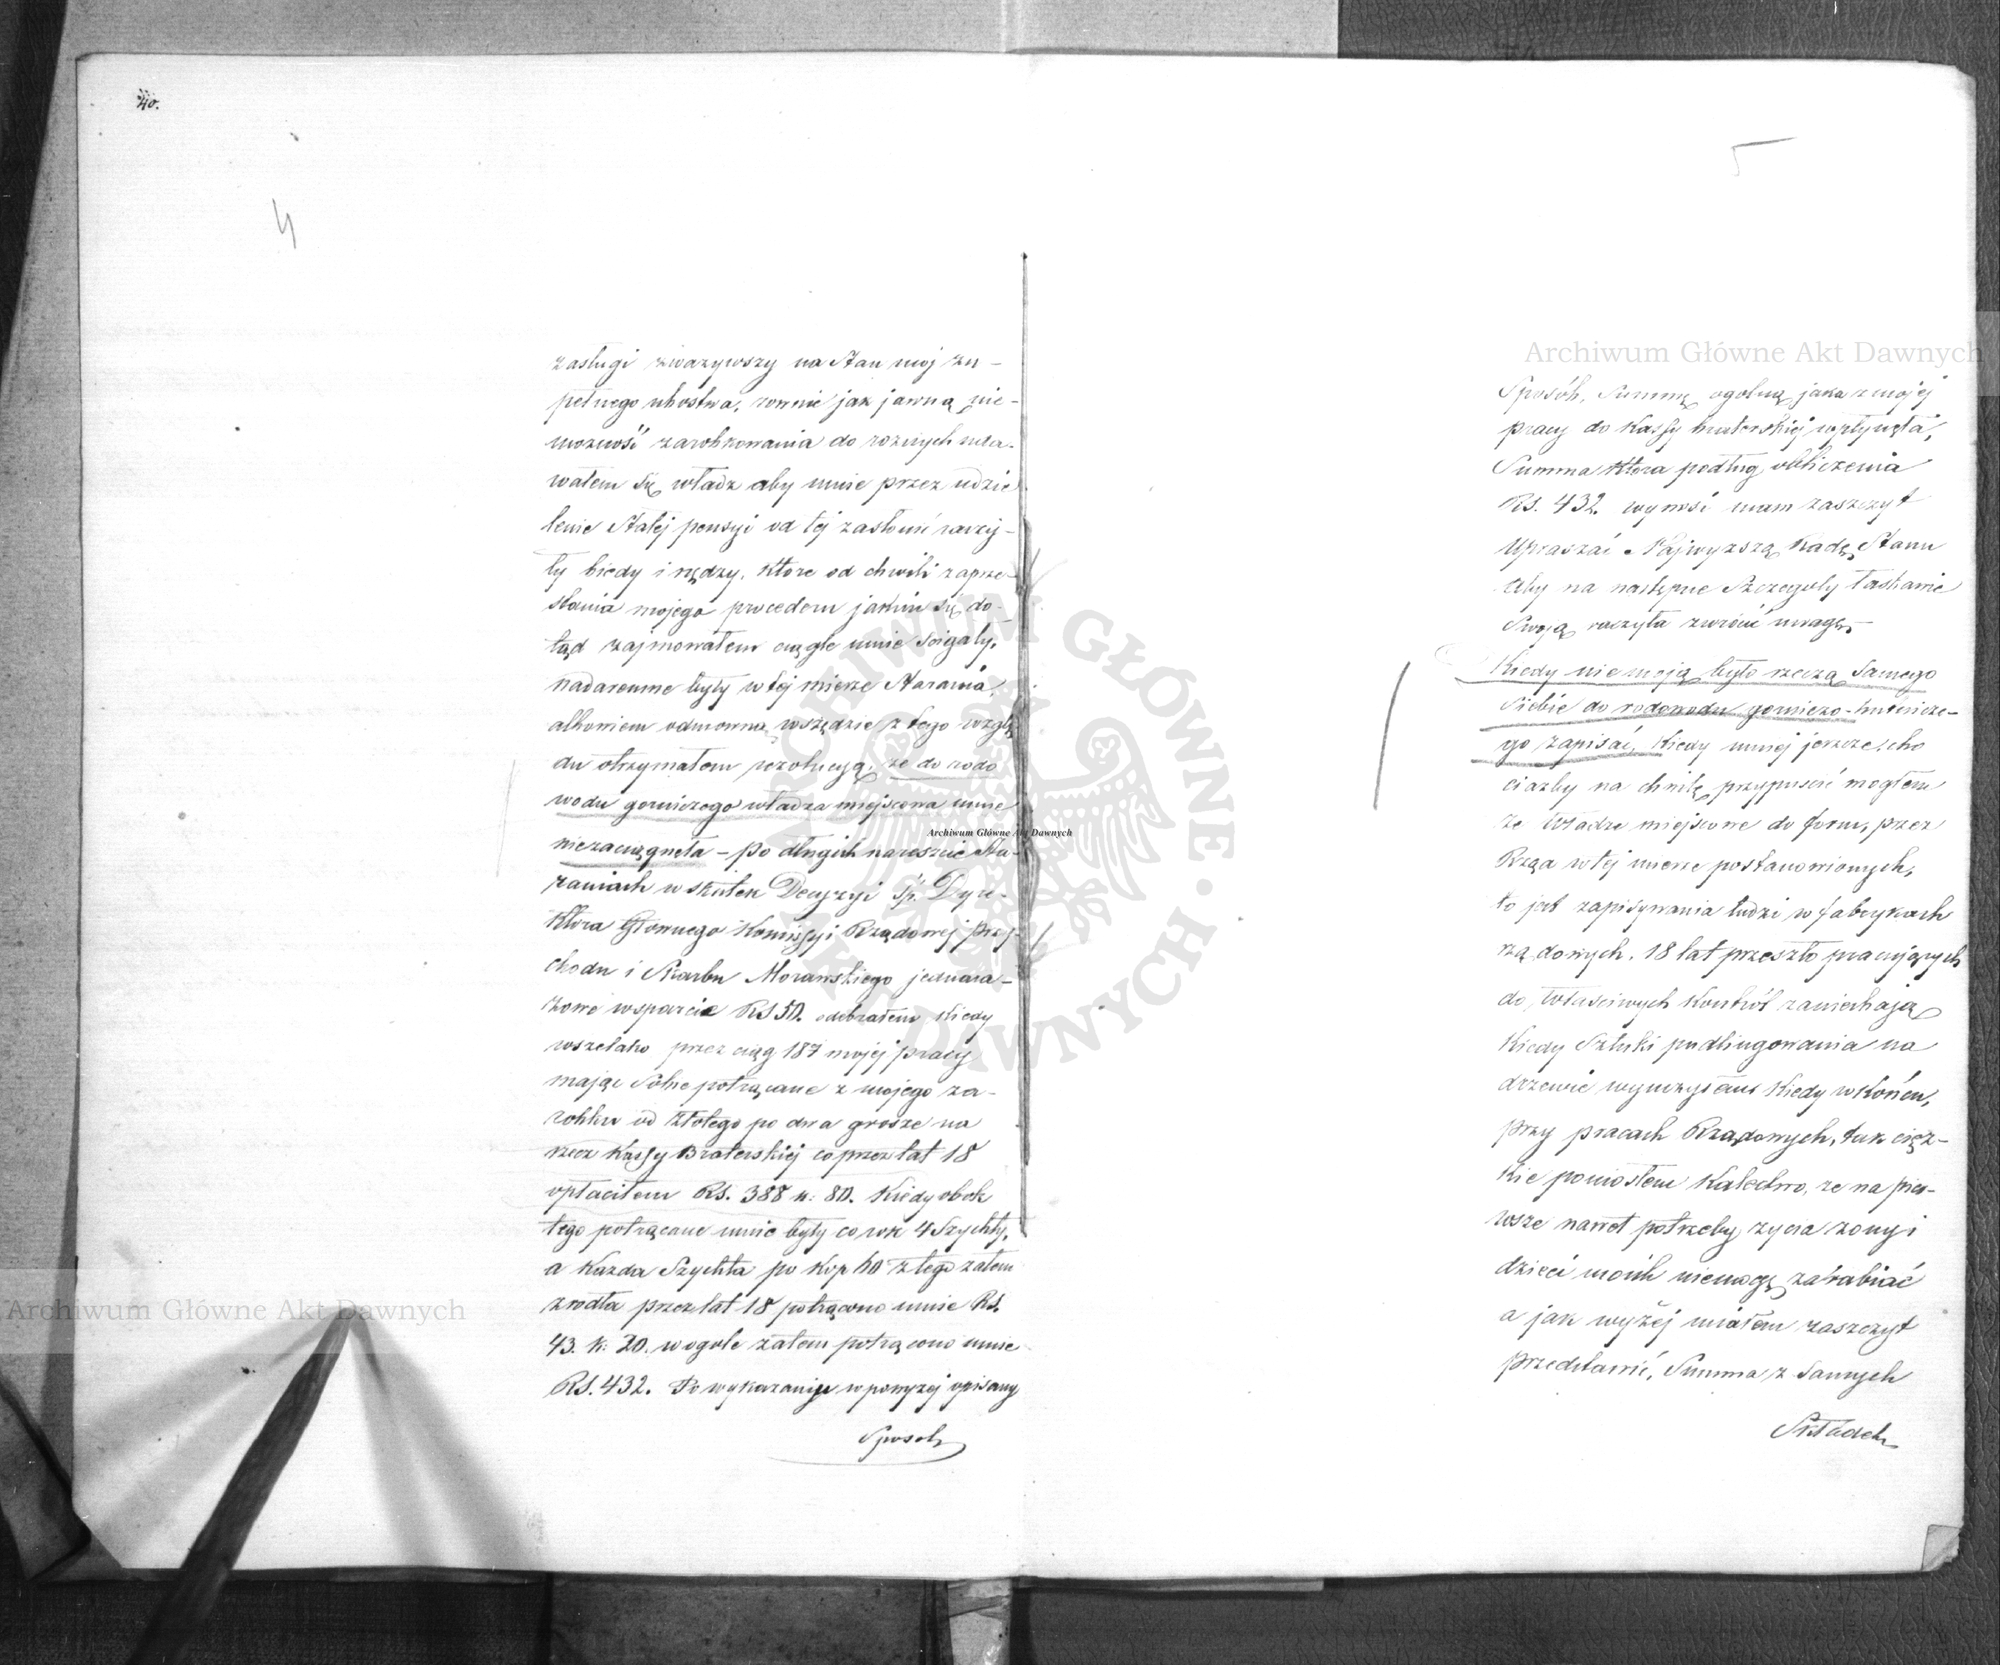 40.
4
zasługi zważywszy na Stan moj zu-
pełnego ubostwa, rownie jak jawną nie-
możność zarobkowania do rożnych uda-
wałem się władz aby mnie przez udzie
lenie Stałej pensyi od tej zasłonić raczy-
ły biedy i nędzy, które od chwili zaprze-
stania mojego procederu jakim się do-
tąd zajmowałem ciągle mnie ścigały,
nadaremne były w tej mierze Starania,
albowiem odmowną wszędzie z tego wzglę
du otrzymałem rezolucyą, że do rodo
wodu gorniczego władza miejscowa mnie
niezaciągneła - po długich nareszcie Sta-
raniach w skutek Decyzyi Śp. Dyre-
ktora Głownego Kommissyi Rządowej przy
chodu i Skarbu Morawskiego jednora-
zowe wsparcie RS 50. odebrałem kiedy
wszelako przez ciąg 187 mojej pracy
mając Sobie potrącane z mojego za-
robku od złotego po dwa grosze na
rzecz Kassy Braterskiej co przez lat 18
opłaciłem RS. 388 k: 80. Kiedy obok
tego potrącane mnie były co rok 4 Szychty,
a każda Szychta po kop 60 z tego zatem
zrodła przez lat 18 potrącono mnie RS.
43. k: 20. w ogole zatem potrącono mnie
RS. 432. Po wykazaniu w powyżej opisany
Sposob
5
Sposób, Summę ogolną jaka z mojej
pracy do Kassy braterskiej wpłynęła,
Summa która podług obliczenia
RS. 432. wynosi mam zaszczyt
Upraszać Najwyższą Radę Stanu
aby na następne Szczegoły łaskawie
Swoją raczyła zwrócić uwagę,-
Kiedy nie moją było rzeczą Samego
Siebie do rodowodu gorniczo-hutnicze-
go zapisać, Kiedy mniej jeszcze cho
ciażby na chwilę przypuścić mogłem
że Władze miejscowe do form, przez
Rząd w tej mierze postanowionych,
to jest zapisywania ludzi w fabrykach
rządowych, 18 lat przeszło pracujących
do właściwych Kontról zaniechają
Kiedy Sztuki pudlingowania na
drzewie wymyśliłem Kiedy w końcu,
przy pracach Rządowych, tak cięż-
kie poniosłem kalectwo, że na pier-
wsze nawet potrzeby życia żony i
dzieci moich niemogę zarabiać
a jak wyżej miałem zaszczyt
przedstawić, Summa z Samych
Składek
Archiwum Główne Akt Dawnych
Archiwum Główne Akt Dawnych
Archiwum Główne Akt Dawnych
ARCHIWUM GŁÓWNE AKT DAWNYCH